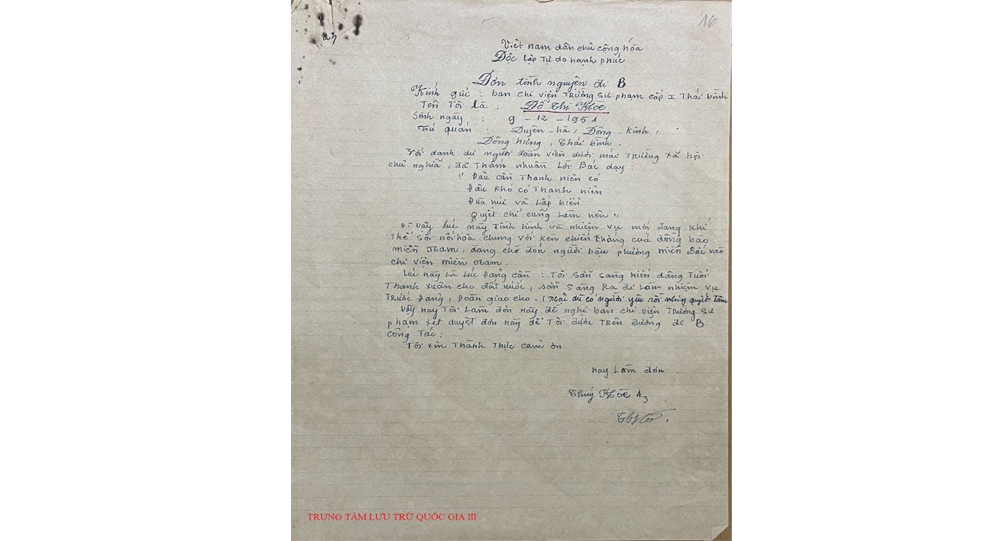 16
a3
Việt nam dân chủ cộng hóa
Độc lập Tự do hạnh phúc
Đơn tình nguyện đi B
Kính gửi : ban chi viện Trường Sư phạm cấp I Thái bình
Tên Tôi là : Đỗ Thị Khoe
Sinh ngày : 9 - 12 - 1951
Trú quán : Duyên - hà , Đông - kinh ,
Đông hưng , Thái bình .
Với danh dự người đoàn viên dưới mái Trường xã hội
chủ nghĩa , đã Thấm nhuần Lời Bác dạy :
" Đâu cần Thanh niên có
Đâu khó có Thanh niên
Đào núi và Lấp biển
Quyết chí cũng Làm nên "
vậy lúc này Tình hình và nhiệm vụ mới đang khí
Thế sôi nổi hòa chung với kèn chiến Thắng của đồng bào
miền Nam , đang chờ đón người hậu phương miền Bắc vào
chi viện miền Nam .
Lúc này Là Lúc Đảng cần : Tôi sẵn sàng hiến dâng Tuổi
Thanh xuân cho đất nước , sẵn sàng Ra đi Làm nhiệm vụ
Trước Đảng , Đoàn giao cho . (Mặc dù có người yêu rồi nhưng quyết tâm
Vậy nay Tôi Làm đơn này đề nghị ban chi viện Trường Sư
phạm xét duyệt đơn này để Tôi được Trên đường đi B
công Tác .
Tôi xin Thành Thực cảm ơn
nay Làm đơn .
Khoe A3
TRUNG TÂM LƯU TRỮ QUỐC GIA III